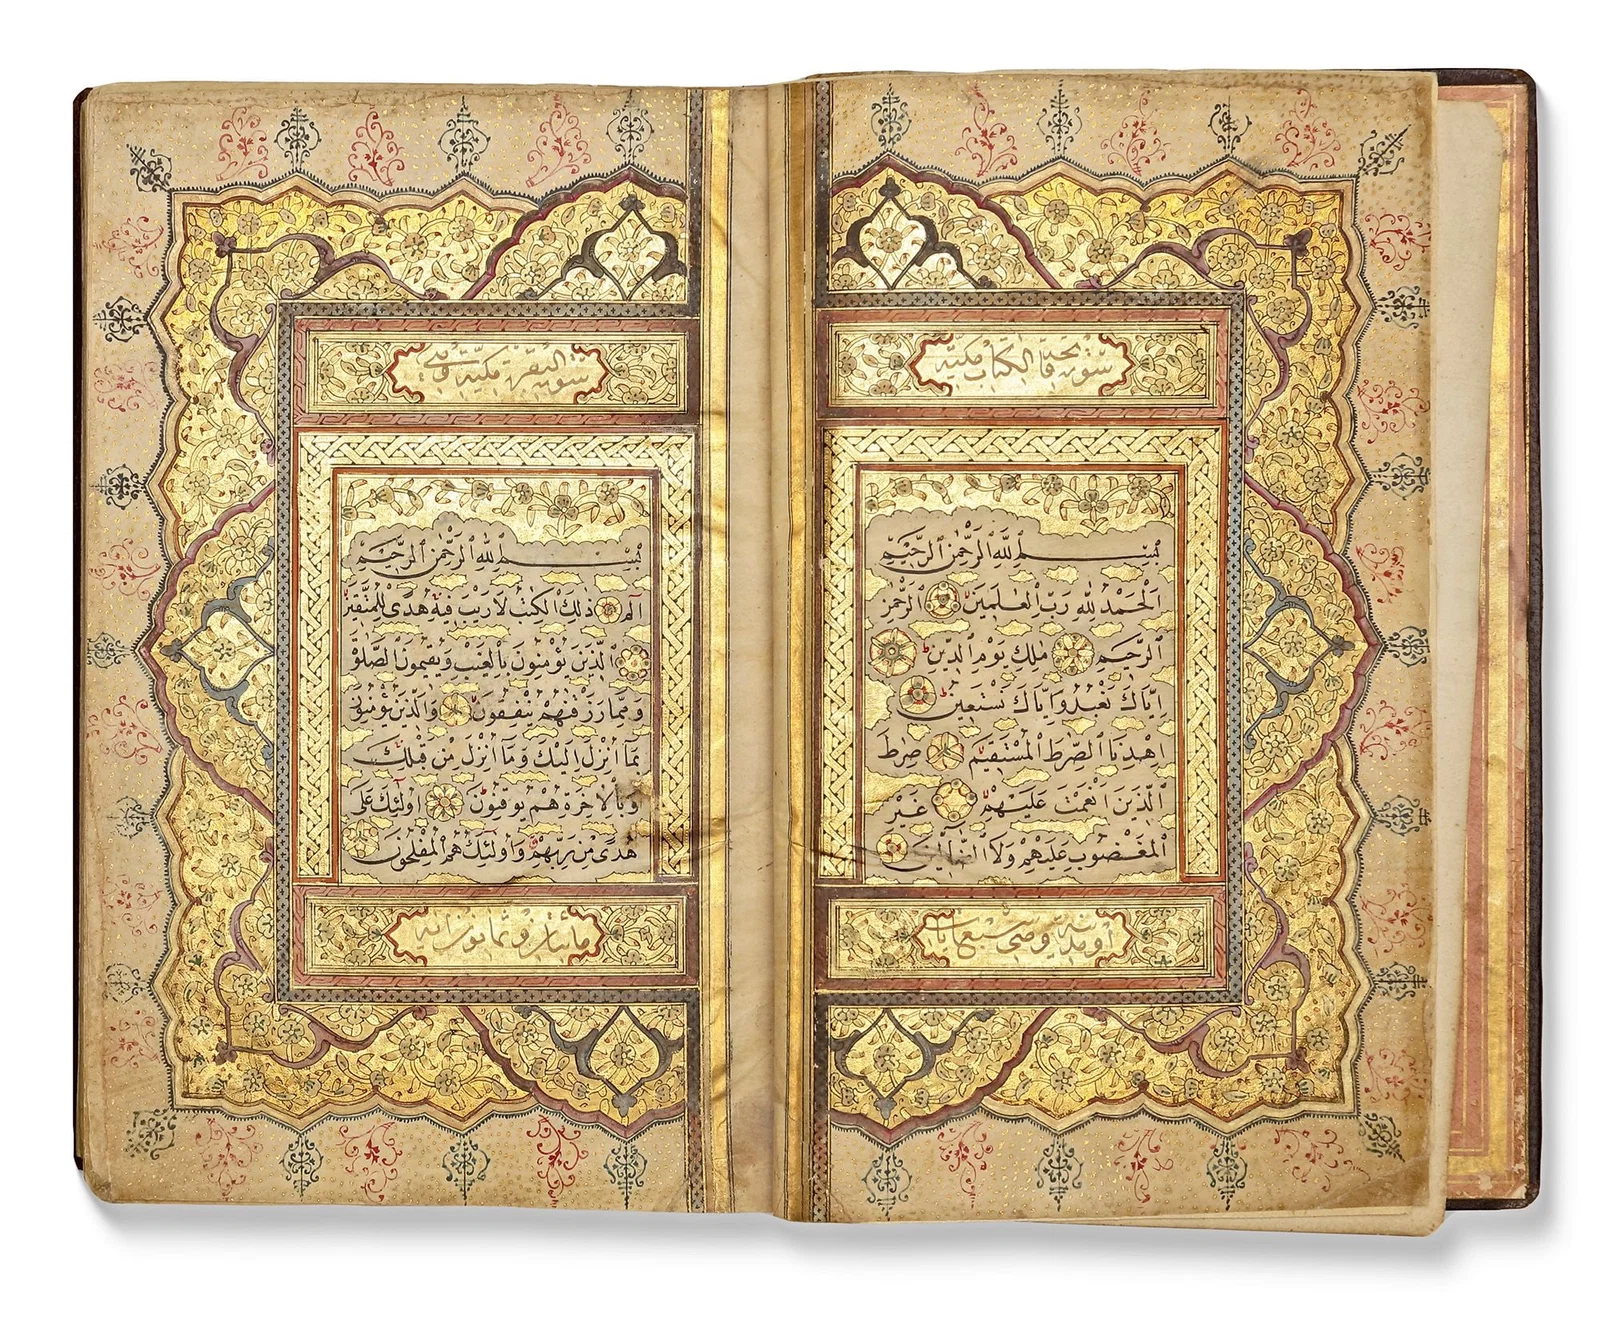 سورة فاتحة الكتاب مكية
بِسْمِ ٱللَّهِ ٱلرَّحْمٰنِ ٱلرَّحِيمِ
اَلْحَمْدُ لِلّٰهِ رَبِّ ٱلْعٰلَمِينَ ٱلرَّحْمٰنِ
ٱلرَّحِيمِ مٰلِكِ يَوْمِ ٱلدِّينِ
اِيَّاكَ نَعْبُدُ وَاِيَّاكَ نَسْتَعِينُ
اِهْدِنَا ٱلصِّرٰطَ ٱلْمُسْتَقِيمَ صِرٰطَ
ٱلَّذِينَ اَنْعَمْتَ عَلَيْهِمْ غَيْرِ
ٱلْمَغْضُوبِ عَلَيْهِمْ وَلَا ٱلضَّآلِّينَ
او مدنية وهي سبع ايات
سورة البقرة مكية وهي
بِسْمِ ٱللَّهِ ٱلرَّحْمٰنِ ٱلرَّحِيمِ
الٓمٓ ذٰلِكَ ٱلْكِتٰبُ لَا رَيْبَ فِيهِ هُدًى لِلْمُتَّقِينَ
ٱلَّذِينَ يُؤْمِنُونَ بِٱلْغَيْبِ وَيُقِيمُونَ ٱلصَّلٰوةَ
وَمِمَّا رَزَقْنٰهُمْ يُنْفِقُونَ وَٱلَّذِينَ يُؤْمِنُونَ
بِمَا اُنْزِلَ اِلَيْكَ وَمَا اُنْزِلَ مِنْ قَبْلِكَ
وَبِٱلْاٰخِرَةِ هُمْ يُوقِنُونَ اُولٰئِكَ عَلٰى
هُدًى مِنْ رَبِّهِمْ وَاُولٰئِكَ هُمُ ٱلْمُفْلِحُونَ
مائتان وثمانون اية